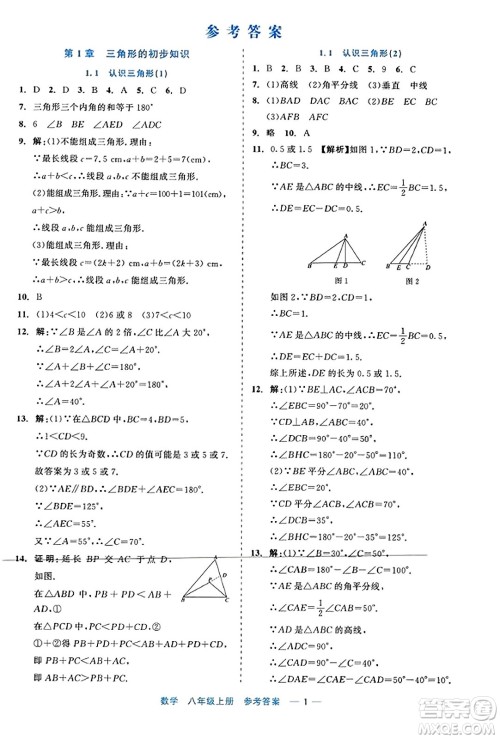 参考答案
第1章 三角形的初步知识
1.1 认识三角形(1)
1. D 2. D 3. A 4. A 5. C 6. D
7. 三角形三个内角的和等于180°
8. 6 ∠B ∠AED ∠ADC
9. 解:(1)不能组成三角形.理由:
∵最长线段c=7.5 cm,a+b=7 cm,
∴a+b<c.∴线段a,b,c不能组成三角形.
(2)能组成三角形.理由:
a+b>c.
(3)能组成三角形.理由:
∵最长线段c=(2k+2) cm,a+b=(2k+3) cm,
∴a+b>c.
10. B
11. (1)4<c<10 (2)6或8 (3)7<c<10
12. 解:∵∠B是∠A的2倍,∠C比∠A+∠B大60°,
∴∠B=2∠A,
∠C=∠A+∠B+60°=∠A+2∠A+60°.
∵∠A+∠B+∠C=180°,
∴∠A+2∠A+∠A+2∠A+60°=180°.
∴∠A=20°.
13. 解:(1)∵在△BCD中,BC=4,BD=5,
∴1<CD<9.
∵CD的长是奇数,∴CD的值可能为3或5或7.
故答案为3或5或7.
(2)∵AE∥BD,∠BDE=125°,
∴∠AEC=55°.
又∵∠A=55°,
∴∠C=70°.
14. 证明:延长BP交AC于点D,
如图.
在△ABD中,PB+PD<AB+AD,①
在△PCD中,PC<PD+CD,②
①+②得PB+PD+PC<AB+AD+PD+CD,
即PB+PC<AB+AC,
即AB+AC>PB+PC.
A
D
P
B
C
1.1 认识三角形(2)
1. B 2. D 3. C 4. D 5. 9 6. C
7. (1)高线 (2)角平分线 (3)垂直 中线
8. (1)BAD DAC BAC (2)AFC
9. 略 10. A
11. 0.5或1.5 【解析】如图1,
∵BD=1,DC=2,
∴BC=3.
∵AE是△ABC的中线,∴CE=1/2BC=1.5.
∴DE=DC-CE=0.5.
A
B
E
D
C
图1
A
B
E
C
D
图2
如图2,∵BD=2,DC=1,
∴BC=1.
∵AE是△ABC的中线,∴CE=1/2BC=0.5.
∴DE=DC+CE=1.5.
综上所述,DE的长为0.5或1.5.
12. 解:(1)∵BE⊥AC,∠ACB=70°,
∴∠CBE=90°-70°=20°.
∵CD⊥AB,∠ABC=40°,
∴∠BCD=90°-40°=50°.
∴∠BHC=180°-20°-50°=110°.
(2)∵BE平分∠ABC,∠ABC=40°,
∴∠CBE=20°.
∵CD平分∠ACB,∠ACB=70°,
∴∠BCD=35°.
∴∠BHC=180°-20°-35°=125°.
13. 解:(1)∵∠B=30°,∠C=50°,
∴∠CAB=180°-∠B-∠C=100°.
∵AE是△ABC的角平分线,
∴∠CAE=1/2∠CAB=50°.
∵AD是△ABC的高线,
∴∠ADC=90°.
∴∠CAD=90°-∠C=40°.
∴∠DAE=∠CAE-∠CAD=50°-40°=10°.
数学 八年级上册 参考答案 — 1 —